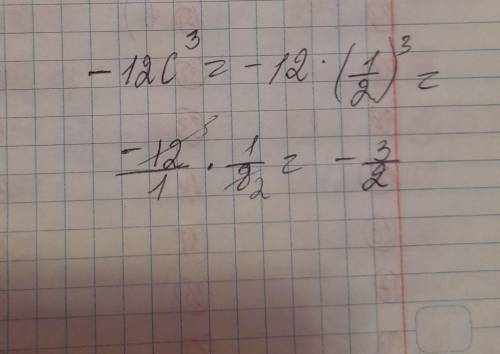 -12c³ = -12 · (1/2)³ =
-12 3/1 · 1/8 2 = - 3/2